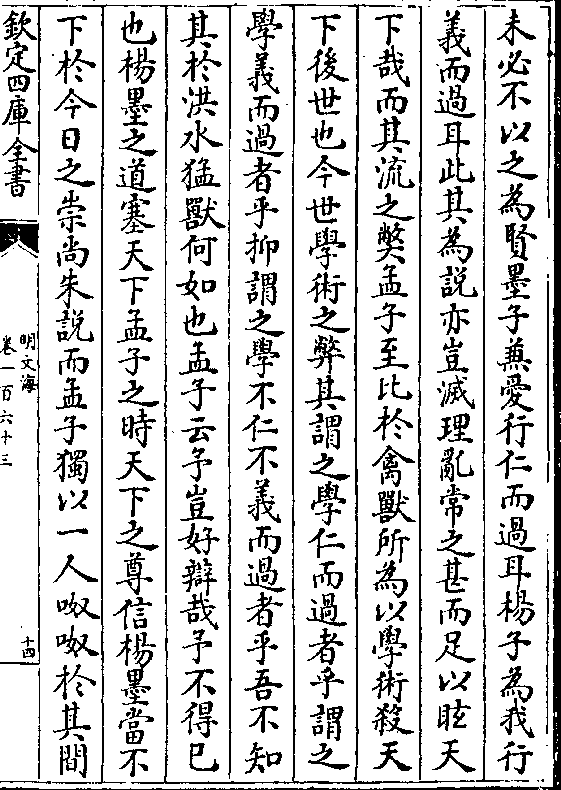 未必不以之為賢墨子兼愛行仁而過耳楊子為我行
義而過耳此其為說亦豈滅理亂常之甚而足以眩天
下哉而其流之獘孟子至比於禽獸所為以學術殺天
下後世也今世學術之弊其謂之學仁而過者乎謂之
學義而過者乎抑謂之學不仁不義而過者乎吾不知
其於洪水猛獸何如也孟子云予豈好辯哉予不得已
也楊墨之道塞天下孟子之時天下之尊信楊墨當不
下於今日之崇尚朱說而孟子獨以一人呶呶於其間
欽定四庫全書
明文海
卷一百六十三
十四